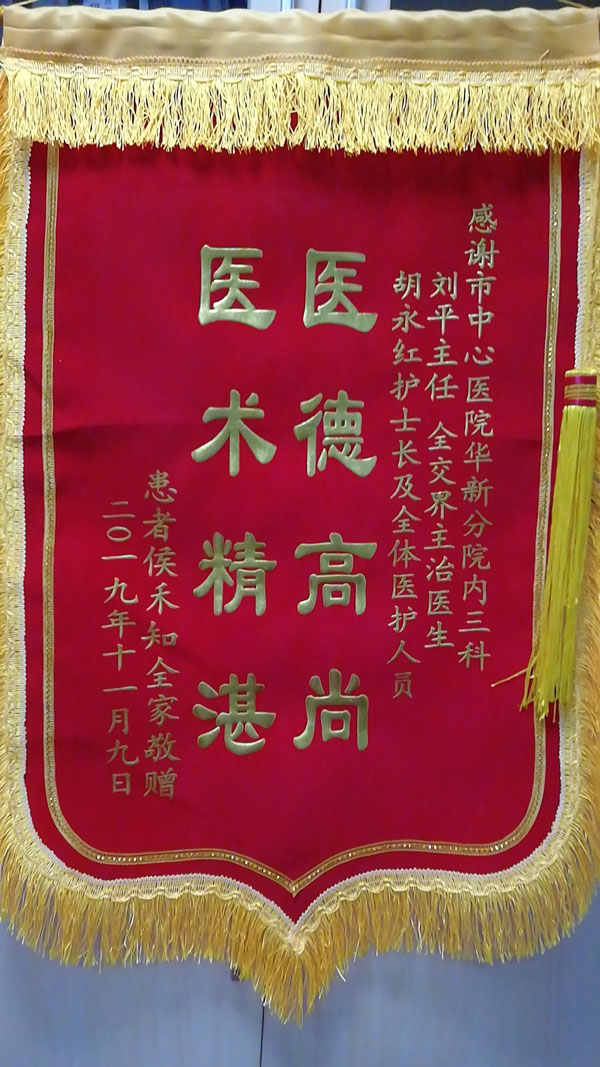 感谢市中心医院华新分院内三科
刘平主任 全交界主治医生
胡永红护士长及全体医护人员
医德高尚
医术精湛
患者侯禾知全家敬赠
二〇一九年十一月九日